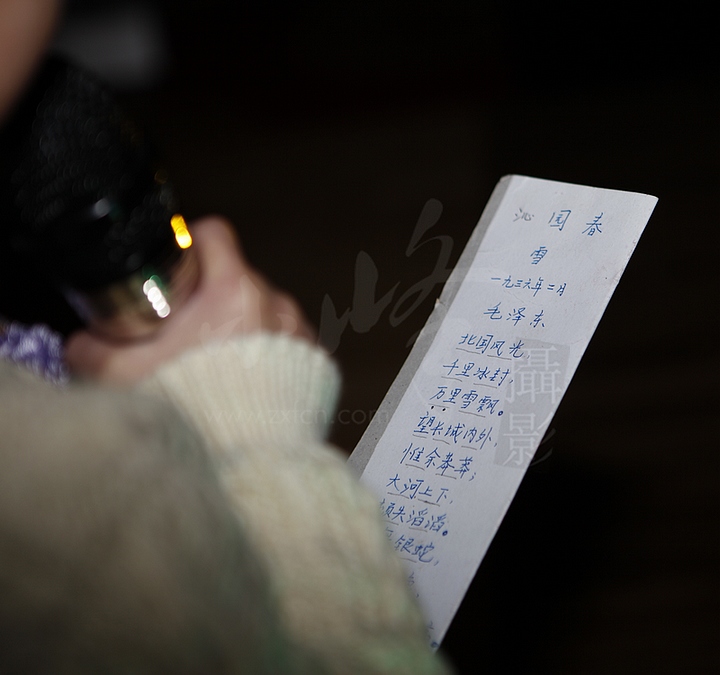 沁国春
雪
一九三六年二月
毛泽东
北国风光,
千里冰封,
万里雪飘。
望长城内外,
惟余莽莽;
大河上下,
顿失滔滔。
银蛇,
攝影